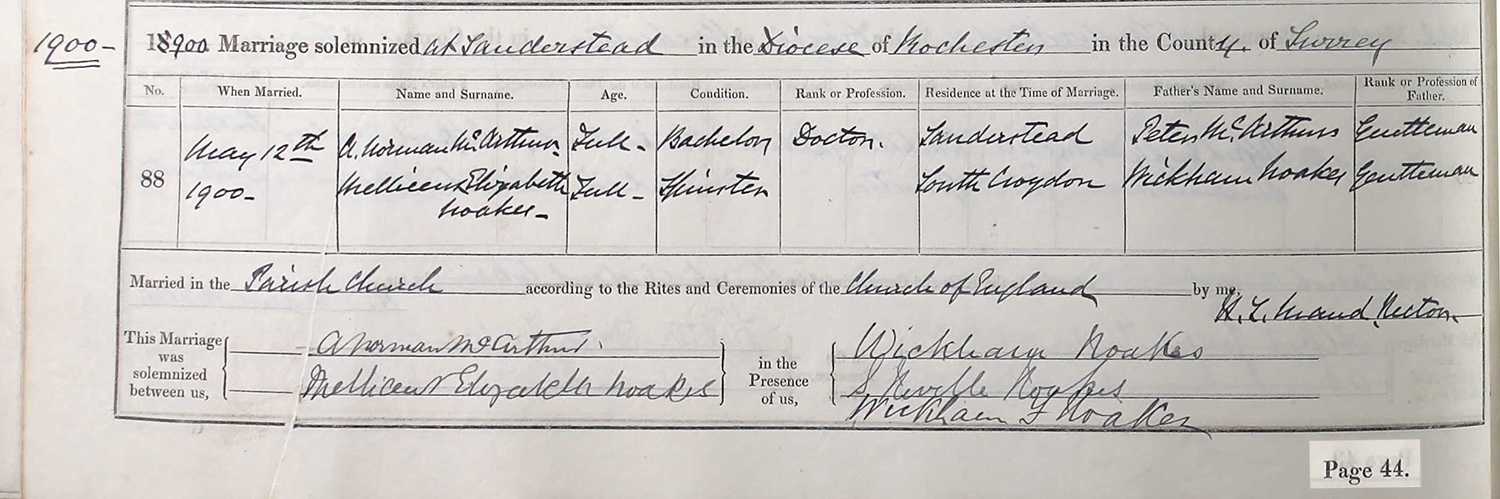 1900 - 18900. Marriage solemnized at Sanderstead in the Diocese of Rochester in the County of Surrey
No. When Married. Name and Surname. Age. Condition. Rank or Profession. Residence at the Time of Marriage. Father's Name and Surname. Rank or Profession of Father.
88 May 12th 1900- A. Norman McArthur- Full- Bachelor Doctor. Sanderstead Peter McArthur Gentleman
Mellicent Elizabeth Noakes- Full- Spinster South Croydon Wickham Noakes Gentleman
Married in the Parish Church according to the Rites and Ceremonies of the Church of England by me,
H. L. Rector-
This Marriage was solemnized between us,
A Norman McArthur.
Mellicent Elizabeth Noakes
in the Presence of us,
Wickham Noakes
S Neville Noakes
Wickham F Noakes
Page 44.